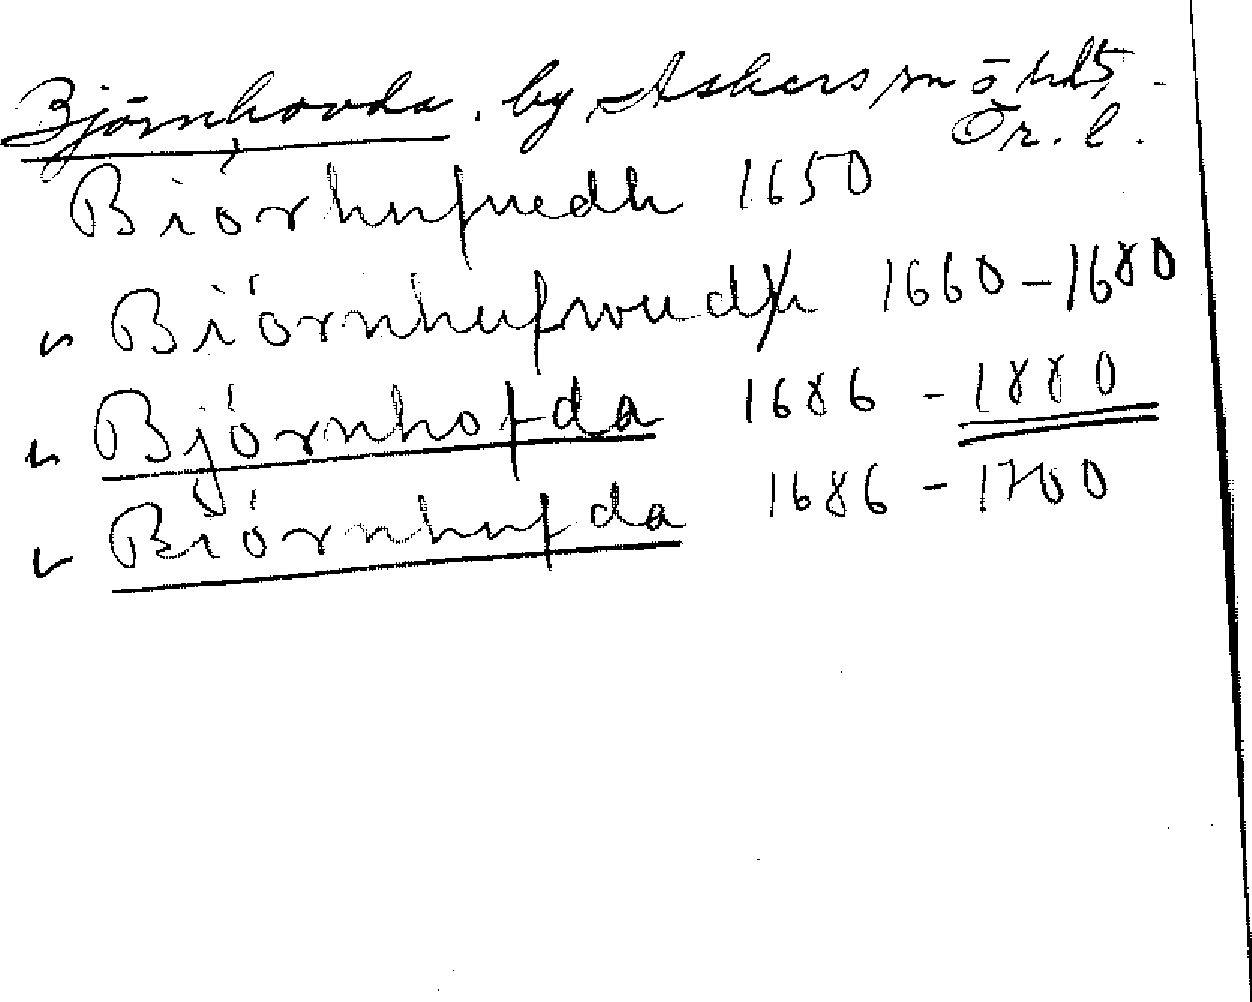 Björnhovda. by Askers sn Ö hds
Ör. l.
Biörhufuedh 1650
" Biörnhufwudh 1660-1680
" Björnhofda 1686 - 1880
" Biörnhufda 1686 - 1700